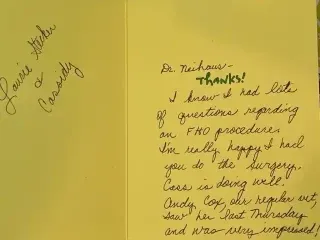 Laurie
&
Cassidy
Dr. Neihaus-
THANKS!
I know I had lots
of questions regarding
an FHO procedure.
I'm really happy I had
you do the surgery.
Cass is doing well.
Andy Cox, our regular vet,
saw her last Thursday
and was very impressed!